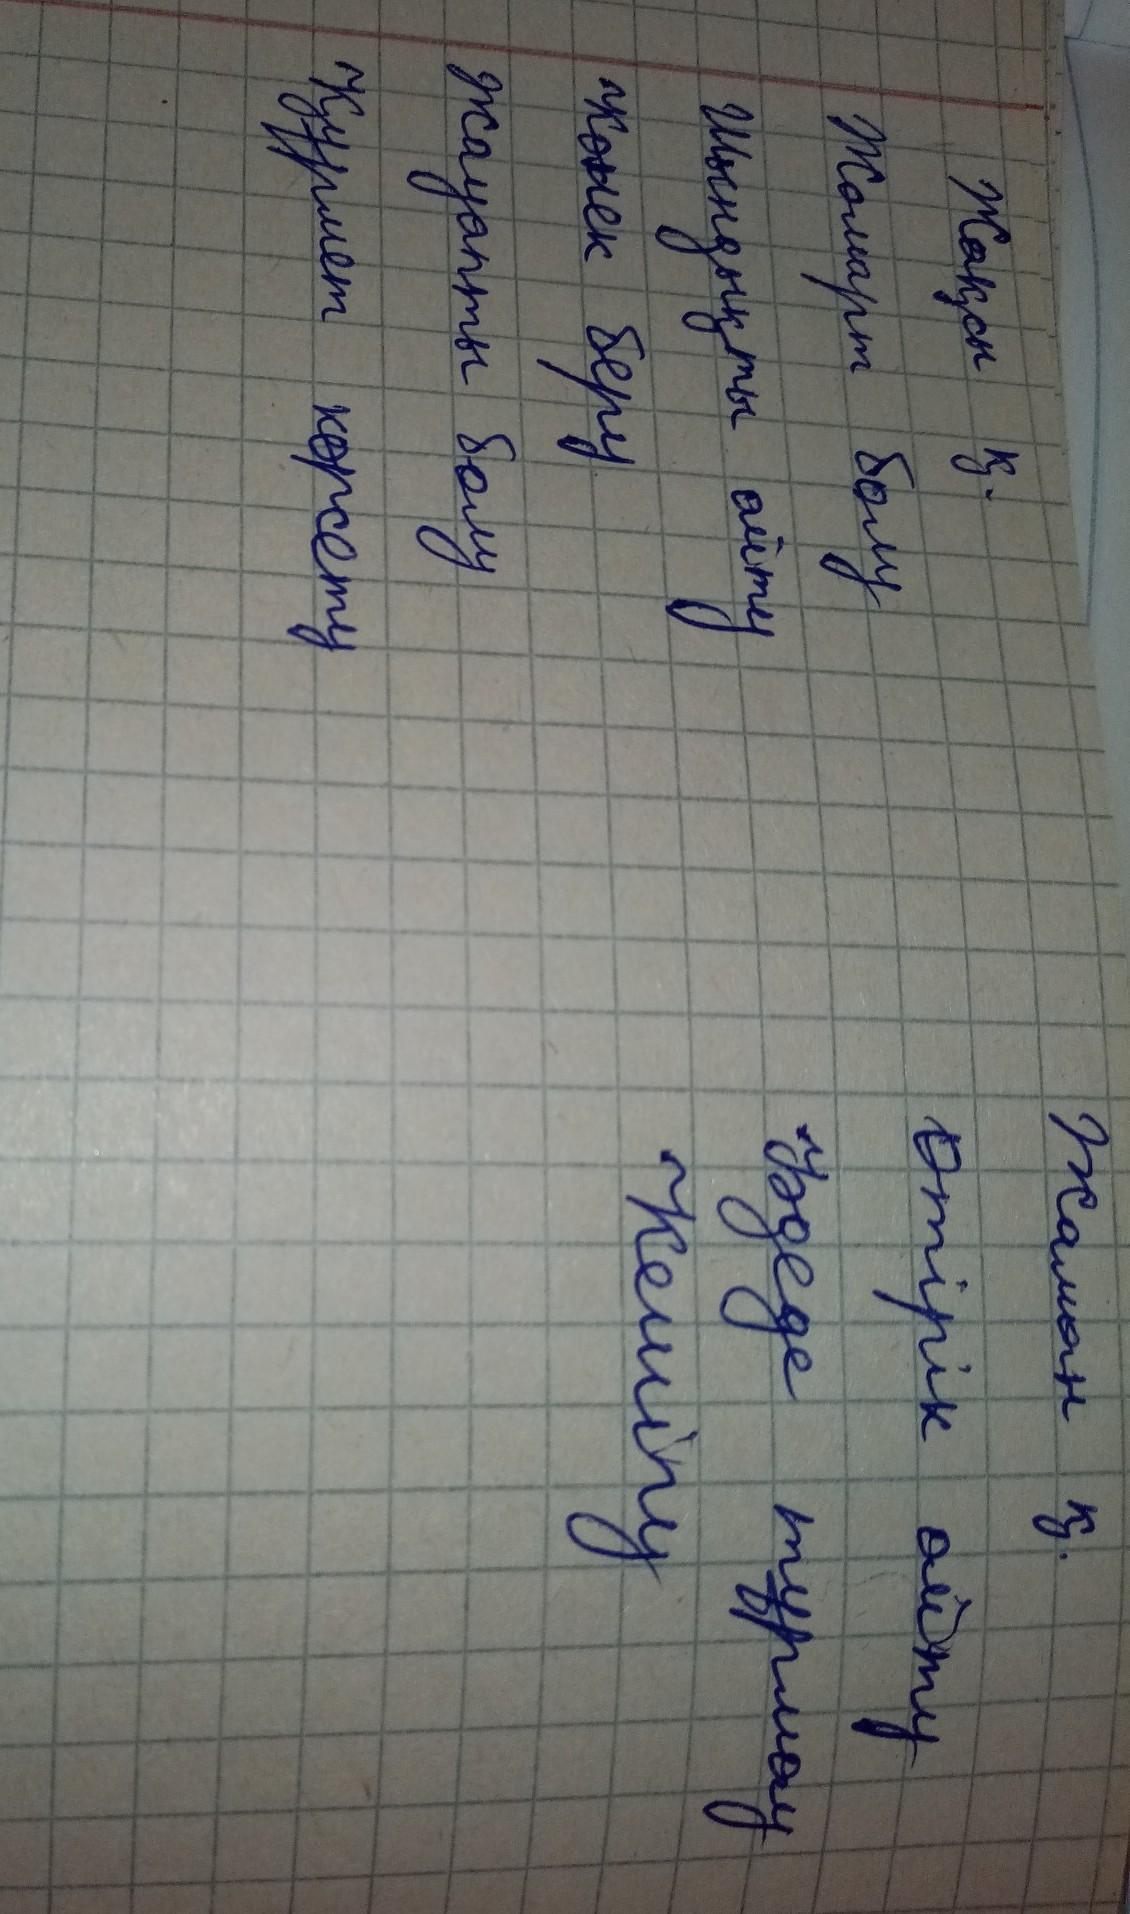 Жақсы қ.
Жомарт болу
Шындықты айту
Көмек беру
Жауапты болу
Құрмет көрсету
Жаман қ.
Өтірік айту
Уәдеде тұрмау
Кешігу